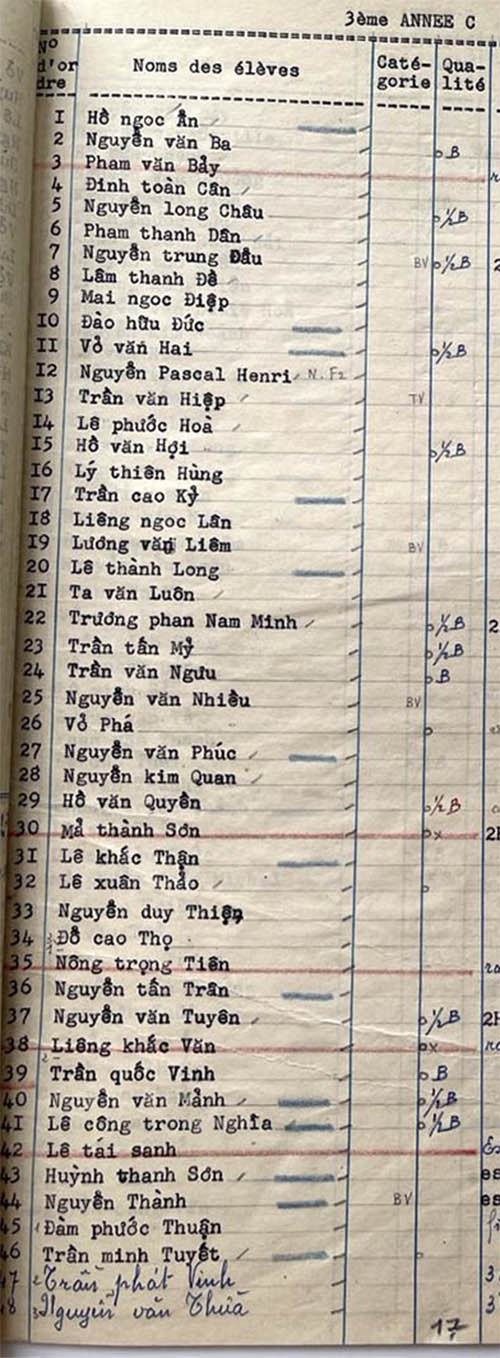 3ème ANNEE C
N° d'or dre Noms des élèves Caté- gorie Qua- lité
I Hồ ngọc Ẩn
2 Nguyễn văn Ba B
3 Phạm văn Bảy
4 Đinh toàn Cân
5 Nguyễn long Châu ½B
6 Phạm thanh Dân
7 Nguyễn trung Đẩu BV ½B 2
8 Lâm thanh Đề
9 Mai ngọc Điệp
IO Đào hữu Đức
II Vỏ văn Hai ½B
I2 Nguyễn Pascal Henri N.F2
I3 Trần văn Hiệp TV
I4 Lê phước Hoà
I5 Hồ văn Hợi ½B
I6 Lý thiên Hùng
I7 Trần cao Kỷ
I8 Liêng ngọc Lân
I9 Lương văn Liêm BV
20 Lê thành Long
2I Ta văn Luôn
22 Trương phan Nam Minh ½B 2
23 Trần tấn Mỷ ½B
24 Trần văn Ngưu B
25 Nguyễn văn Nhiều BV
26 Vỏ Phá
27 Nguyễn văn Phúc
28 Nguyễn kim Quan
29 Hồ văn Quyền ½B
30 Mả thành Sơn x
3I Lê khắc Thận
32 Lê xuân Thảo
33 Nguyễn duy Thiện
34 Đổ cao Thọ
35 Nông trọng Tiên
36 Nguyễn tấn Trân
37 Nguyễn văn Tuyên ½B
38 Liêng khắc Văn x
39 Trần quốc Vinh B
40 Nguyễn văn Mảnh ½B
4I Lê công trong Nghĩa ½B
42 Lê tái sanh
43 Huỳnh thanh Sơn es
44 Nguyễn Thành BV es
45 Đàm phước Thuận
46 Trần minh Tuyết
47 Trần phát Vinh 3
48 Nguyễn văn Thừa 3
17